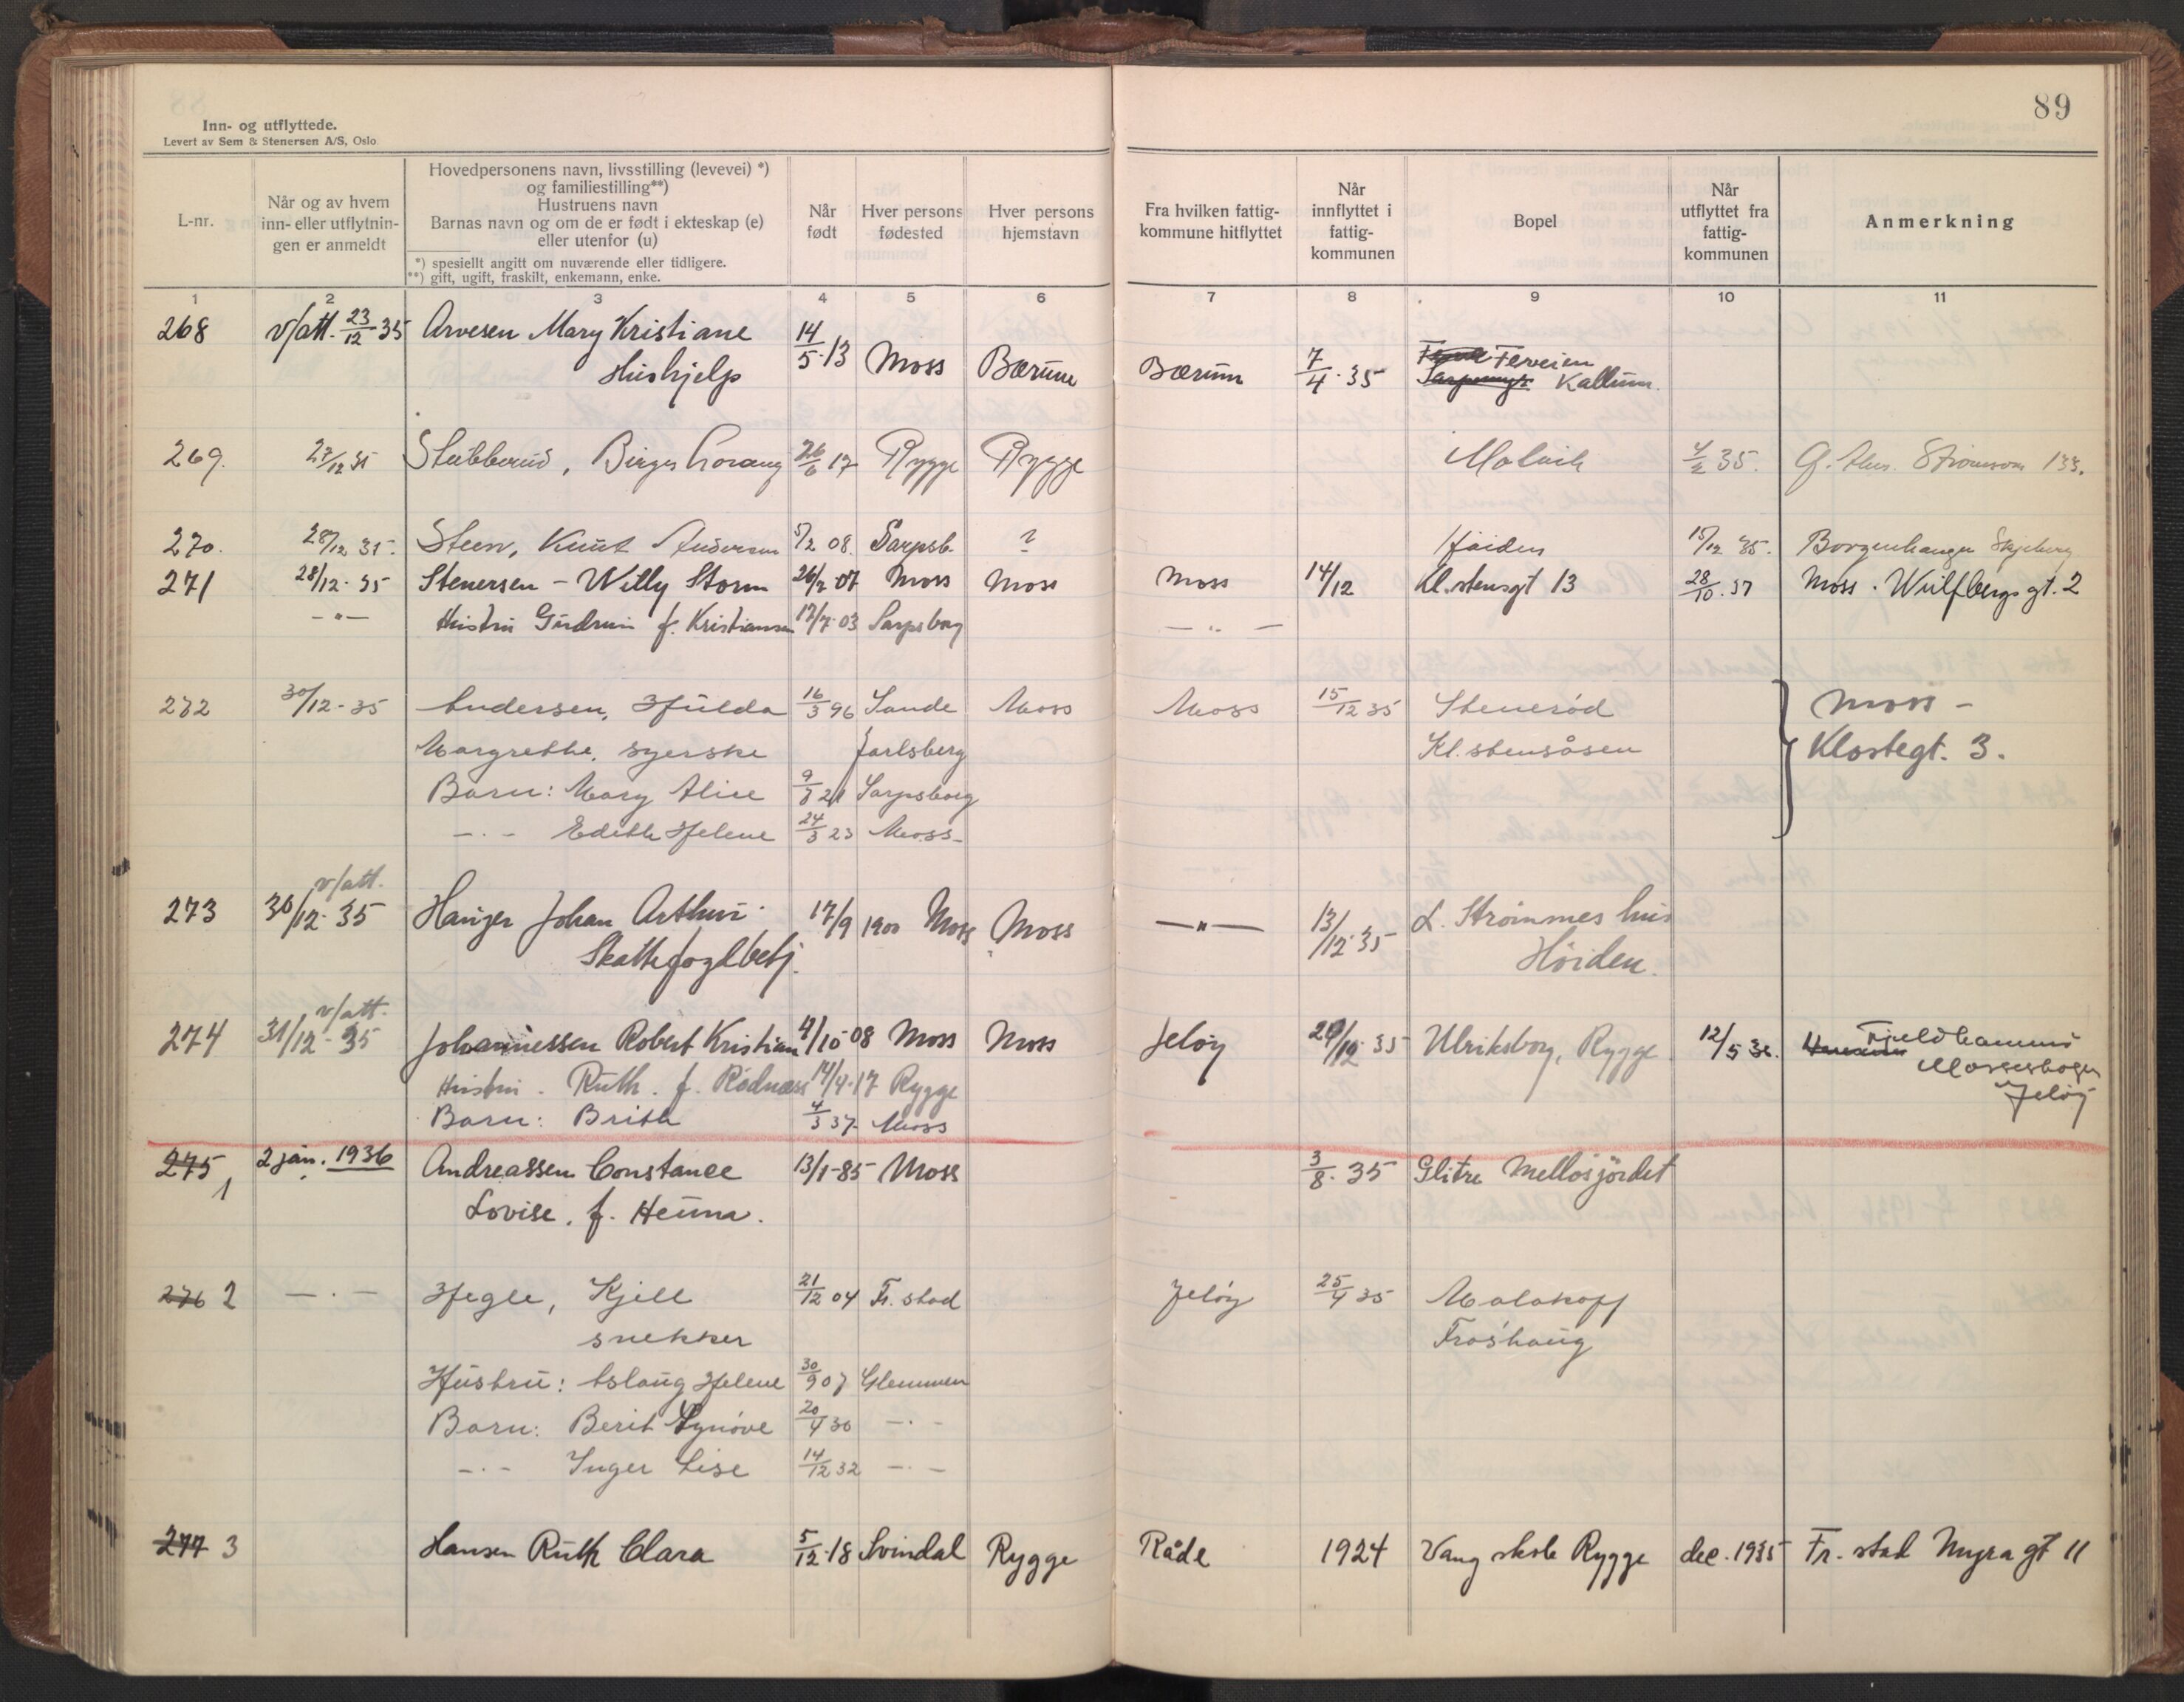 89
Inn- og utflyttede.
Levert av Sem & Stenersen A/S, Oslo
L-nr.
Når og av hvem inn- eller utflytnin- gen er anmeldt
Hovedpersonens navn, livsstilling (levevei) *)
og familiestilling**)
Hustruens navn
Barnas navn og om de er født i ekteskap (e)
eller utenfor (u)
*) spesiellt angitt om nuværende eller tidligere.
**) gift, ugift, fraskilt, enkemann, enke.
Når født
Hver persons fødested
Hver persons hjemstavn
Fra hvilken fattig- kommune hitflyttet
Når innflyttet i fattig- kommunen
Bopel
Når utflyttet fra fattig- kommunen
Anmerkning
1 2 3 4 5 6 7 8 9 10 11
268 v/att. 23/12 35 Arvesen Mary Kristiane 14/5-13 Moss Bærum Bærum 7/4-35 Ferveien
Hushjelp Kallum.
269. 27/12 35 Stubberud, Birger 26/6 17 Rygge Rygge Malvik 4/2 35. 133.
270. 28/12 35. Steen, Knut Andersen 5/2 08. Sarpsb. ? Høiden 15/12 35. Borgenhaugen Skjeberg
271 28/12-35 Stenersen - Willy Storm 26/2-07 Moss Moss Moss 14/12 Kl.stensgt 13 28/10.37 Moss. Wulfbergs gt. 2
-"- Hustru Gudrun f. Kristiansen 12/7-03 Sarpsborg - " -
272 30/12-35 Andersen, Hulda 16/3 96 Sande Moss Moss 15/12 35 Stenerød Moss -
Margrethe, syerske Jarlsberg Kl. stensåsen Klostegt. 3.
Barn: Mary Alice 9/8 21 Sarpsborg
-.- Edith Helene 24/3 23 Moss-
v/att.
273 30/12-35 Hauger Johan Arthur 17/9 1900 Moss Moss -"- 13/12-35 L. Strømmes hus
Skattefogdbetj. Høiden.
v/att.
274 31/12-35 Johannessen Robert Kristian 4/10-08 Moss Moss Jeløy 20/12-35 Ulriksborg, Rygge 12/5 36. Fjeldhammer
Hustru. Ruth. f. Rødnæss 14/4-17 Rygge Mosseskogen
Barn: Brith 4/3 37 Moss Jeløy
275 1 2 jan. 1936 Andreassen Constance 13/1-85 Moss 3/8-35 Glitre Mellosjördet
Lovise, f. Heuma.
276 2 -.- Hegle, Kjell 21/12 04 Fr. stad Jeløy 25/4 35 Malakoff
snekker Froshaug
Hustru: Aslaug Helene 30/9 07 Glemmen
Barn: Berit Synøve 20/4 30 -.-
-.- Inger Lise 14/12 32 -.-
277 3 Hansen Ruth Clara 5/12-18 Svindal Rygge Råde 1924 Vang skole Rygge dec. 1935 Fr. stad Nygra gt 11